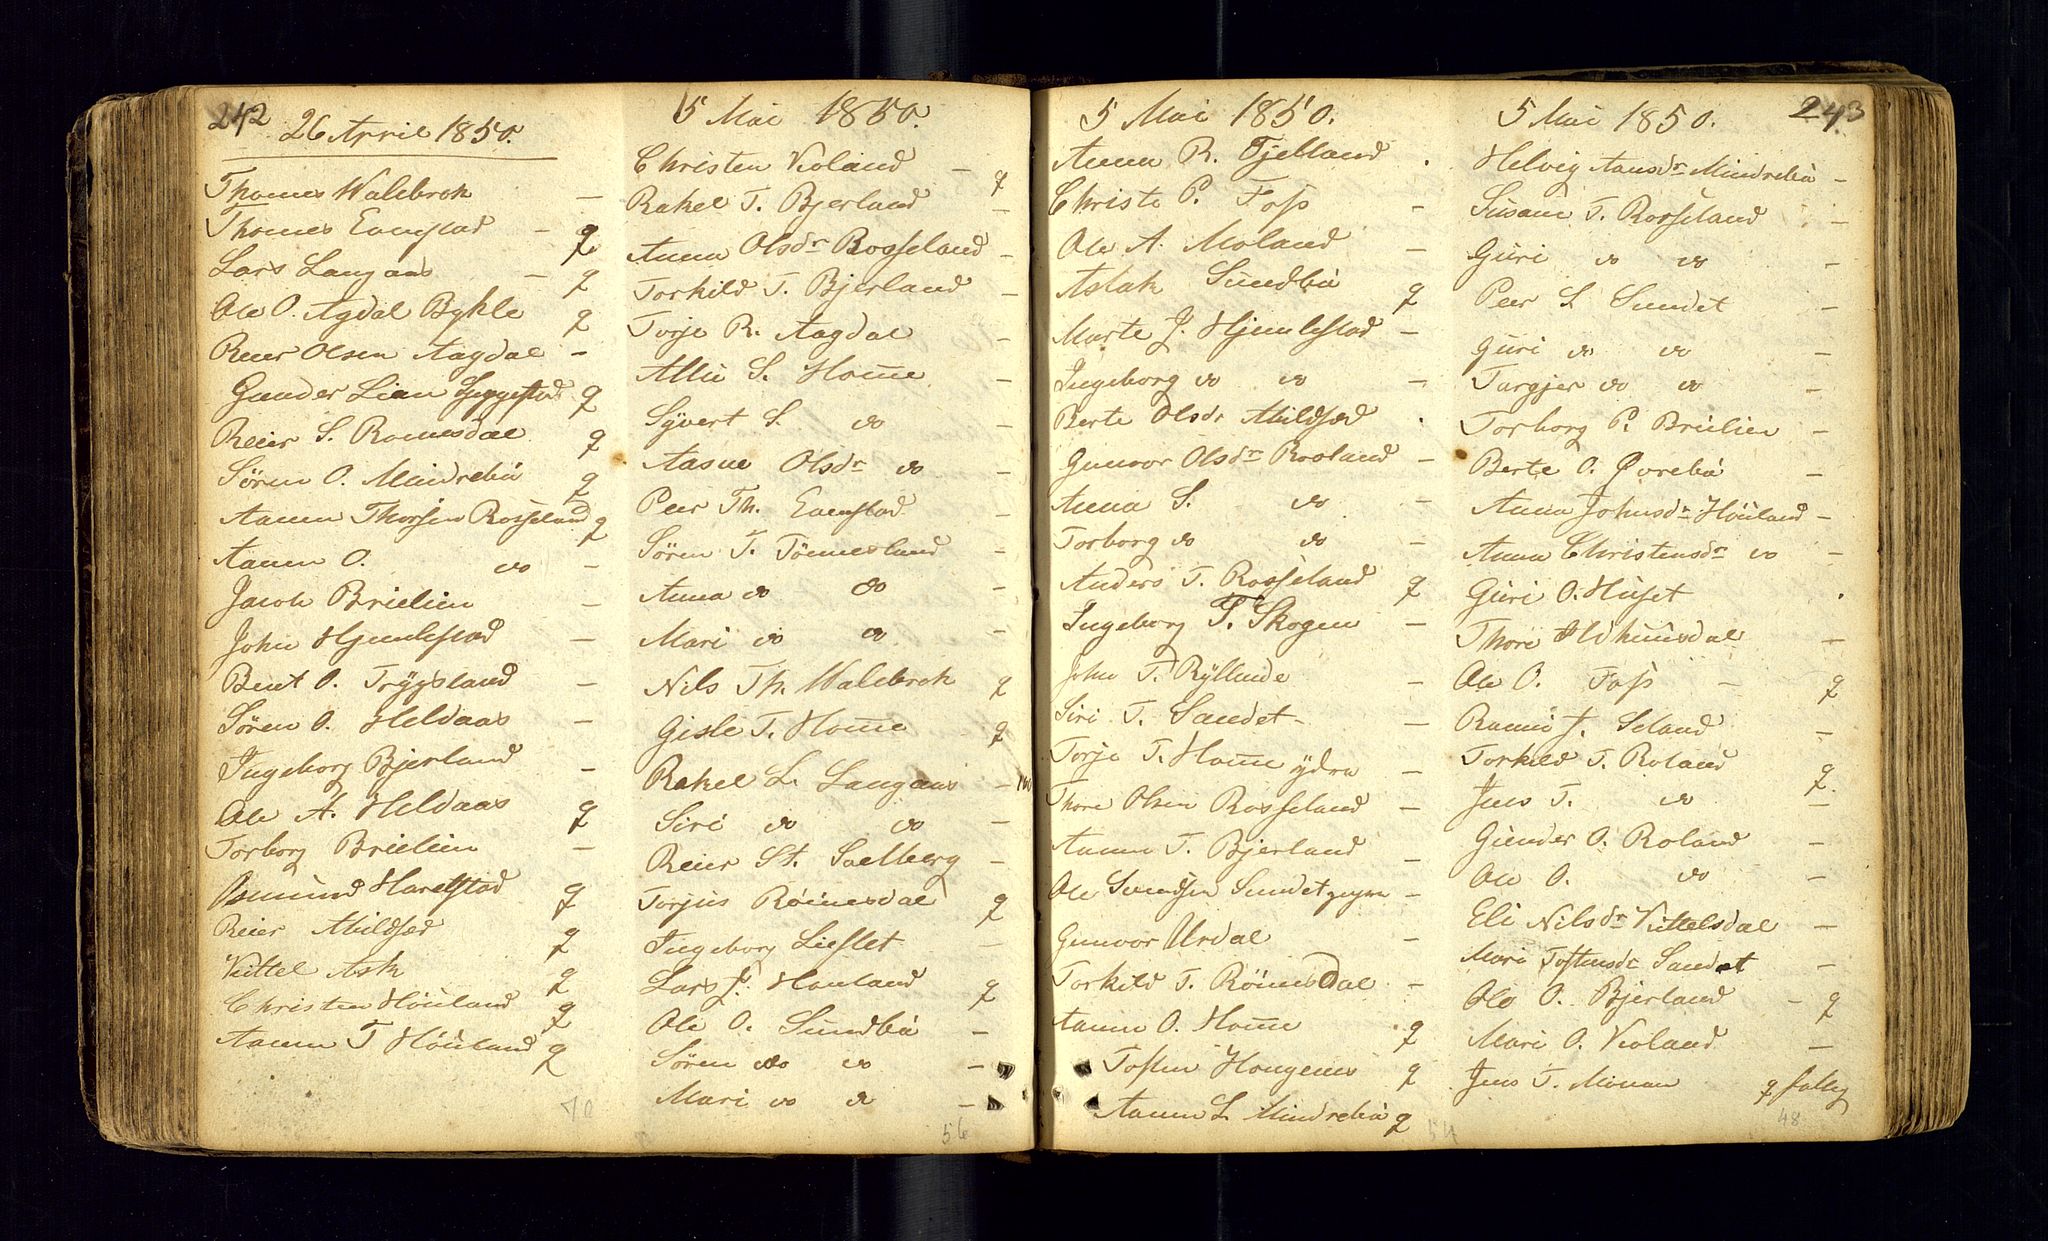 242
26 April 1850.
Thomes Walebrok —
Thomes Eamstad — q
Lars Langaas — q
Ole O. Agdal Bykle q
Reier Olsen Aagdal —
Gunder Lian q
Reier S. Romesdal q
Sören O. Mindrebö q
Aanen Thorsen Rosseland q
Aanen O. do —
Jacob Brielien —
John Hjemlestad —
Bent O. Trygsland —
Sören O. Heldaas —
Ingeborg Bjerland —
Ole A. Heldaas q
Torborg Brielien —
Asmund Harelstad q
Reier Abildsød q
Kittel Ask q
Christen Höuland q
Aanen T Höuland q
70
5 Mai 1850.
Christen Kioland —
Rakel T. Bjerland q —
Anna Olsdr Rosseland —
Torkild T. Bjerland —
Torje R. Aagdal —
Allie S. Home —
Syvert S. do —
Aasne Olsdr do —
Peer Th. Eamstad —
Sören T. Tönnesland —
Anna do do —
Mari do do —
Nils Th. Walebrok q
Gisle T. Home q
Rakel L. Langaas —
Siri do do —
Reier St. Solberg —
Torjus Röinesdal q
Ingeborg Lieslet —
Lars J. Houland q
Ole O. Sundbö —
Sören do do —
Mari do do —
56
5 Mai 1850.
Anna R. Fjelland .
Christe P. Foss —
Ole A. Moland —
Aslak Sundbö q
Marte J. Hjemlestad —
Ingeborg do do —
Berte Olsdr Abildsød .
Gunvor Olsdr Rosland —
Anna S. do —
Torborg do do —
Anders T. Rosseland q
Ingeborg T. Skogen —
John T. Ryllinde —
Siri T. Sandet —
Torje T. Home ydra —
Thore Olsen Rosseland —
Aanen T. Bjerland —
Ole Svendsen Sundet —
Gunvor Urdal —
Torkild T. Röinesdal —
Aanen O. Home q
Tosten Hougenes q
Aanen L. Mindrebö q
54
243
5 Mai 1850.
Helvig Aansdr Mindrebö —
Susane T. Rosseland —
Guri do do —
Peer S Sundet —
Guri do do —
Targjer do do —
Torborg P. Brielien —
Berte O. Øvrebö —
Anna Johnsdr Höuland —
Anna Christensdr do —
Guri O. Huset .
Thore —
Ole O. Foss — q
Ramie J. Seland —
Torkild T. Roland q
Jens T. do —
Gunder O. Roland —
Ole O. do —
Eli Nilsdr Kittelsdal —
Mari Tostensdr Sandet —
Ole O. Bjerland — q
Mari O. Kioland —
Jens T. Monan q
48